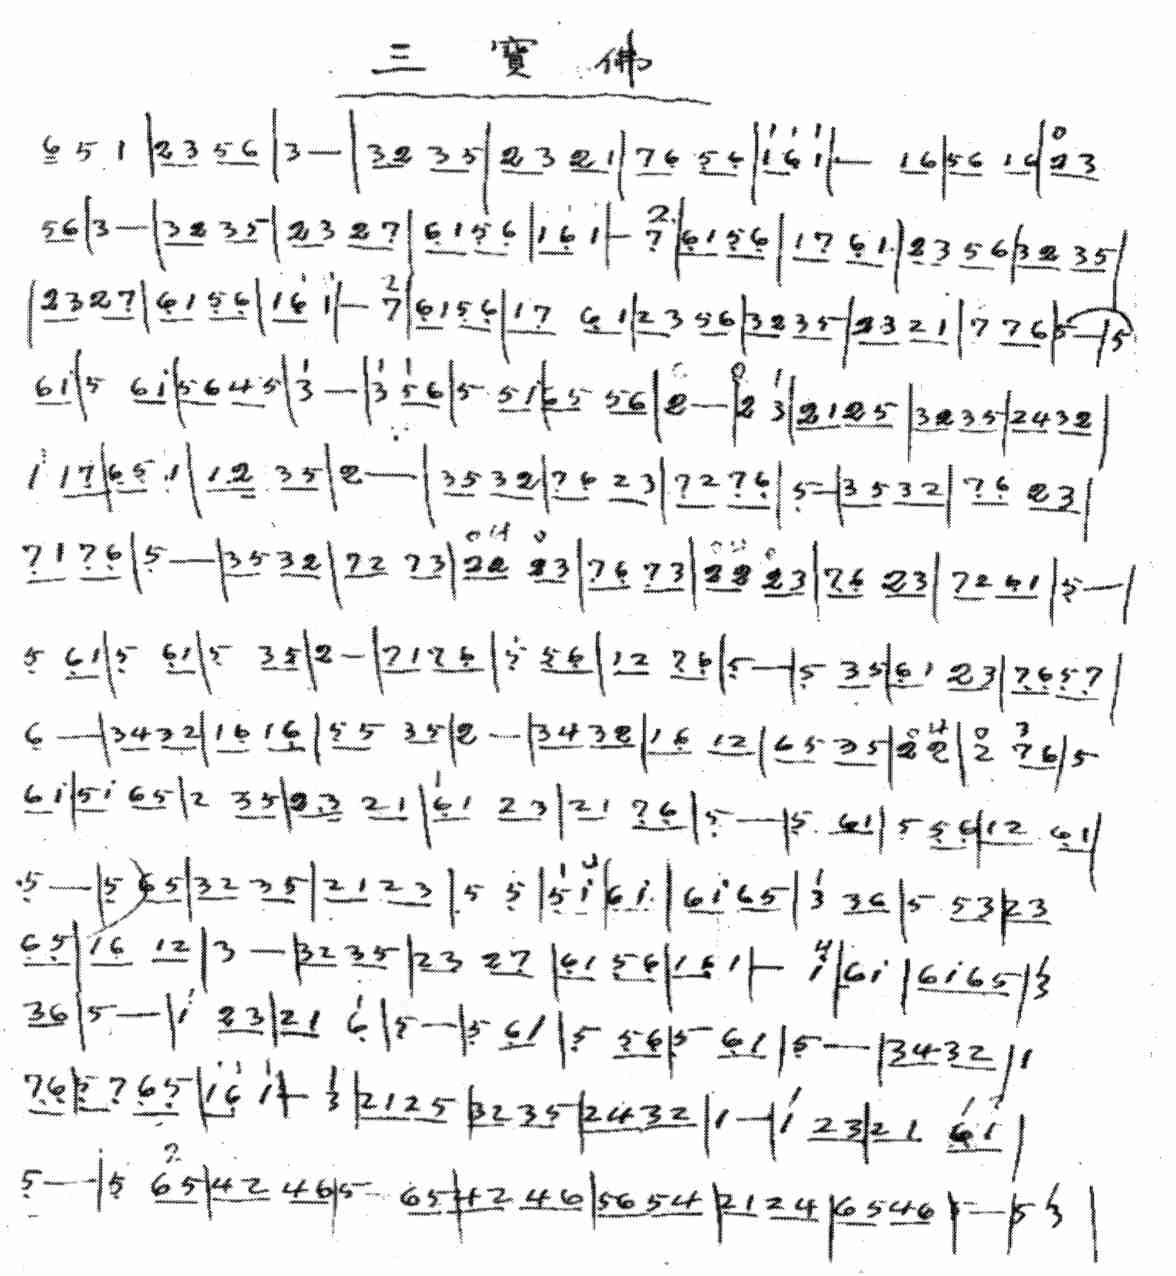 三 寶 佛
6 5 1 | 2 3 5 6 | 3 — | 3 2 3 5 | 2 3 2 1 | 7 6 5 6 | 1 6 1 | — 1 6 | 5 6 1 6 | 2 3
5 6 | 3 — | 3 2 3 5 | 2 3 2 7 | 6 1 5 6 | 1 6 1 | — 7 | 6 1 5 6 | 1 7 6 1 | 2 3 5 6 | 3 2 3 5 |
| 2 3 2 7 | 6 1 5 6 | 1 6 1 | — 7 | 6 1 5 6 | 1 7 6 1 | 2 3 5 6 | 3 2 3 5 | 2 3 2 1 | 7 7 6 | 5 — | 5
6 i | 5 6 i | 5 6 4 5 | 3 — | 3 5 6 | 5 5 i | 6 5 5 6 | 2 — | 2 3 | 2 1 2 5 | 3 2 3 5 | 2 4 3 2 |
1 1 7 | 6 5 1 | 1 2 3 5 | 2 — | 3 5 3 2 | 7 6 2 3 | 7 2 7 6 | 5 — | 3 5 3 2 | 7 6 2 3 |
7 1 7 6 | 5 — | 3 5 3 2 | 7 2 7 3 | 2 2 2 3 | 7 6 7 3 | 2 2 2 3 | 7 6 2 3 | 7 2 6 1 | 5 — |
5 6 1 | 5 6 1 | 5 3 5 | 2 — | 7 1 7 6 | 5 5 6 | 1 2 7 6 | 5 — | 5 3 5 | 6 1 2 3 | 7 6 5 7 |
6 — | 3 4 3 2 | 1 6 1 6 | 5 5 3 5 | 2 — | 3 4 3 2 | 1 6 1 2 | 6 5 3 5 | 2 2 | 2 7 6 | 5
6 i | 5 i 6 5 | 2 3 5 | 2 3 2 1 | 6 1 2 3 | 2 1 7 6 | 5 — | 5 6 1 | 5 5 6 | 1 2 6 1 |
5 — | 5 6 5 | 3 2 3 5 | 2 1 2 3 | 5 5 | 5 i | 6 i | 6 i 6 5 | 3 3 6 | 5 5 3 | 2 3
6 5 | 1 6 1 2 | 3 — | 3 2 3 5 | 2 3 2 7 | 6 1 5 6 | 1 6 1 | — 1 | 6 i | 6 i 6 5 | 3
3 6 | 5 — | 1 2 3 | 2 1 6 | 5 — | 5 6 1 | 5 5 6 | 5 6 1 | 5 — | 3 4 3 2 | 1
7 6 | 5 7 6 5 | 1 6 1 | — 3 | 2 1 2 5 | 3 2 3 5 | 2 4 3 2 | 1 — | 1 2 3 | 2 1 6 1 |
5 — | 5 6 5 | 4 2 4 6 | 5 6 5 | 4 2 4 6 | 5 6 5 4 | 2 1 2 4 | 6 5 4 6 | 5 — | 5 3 |